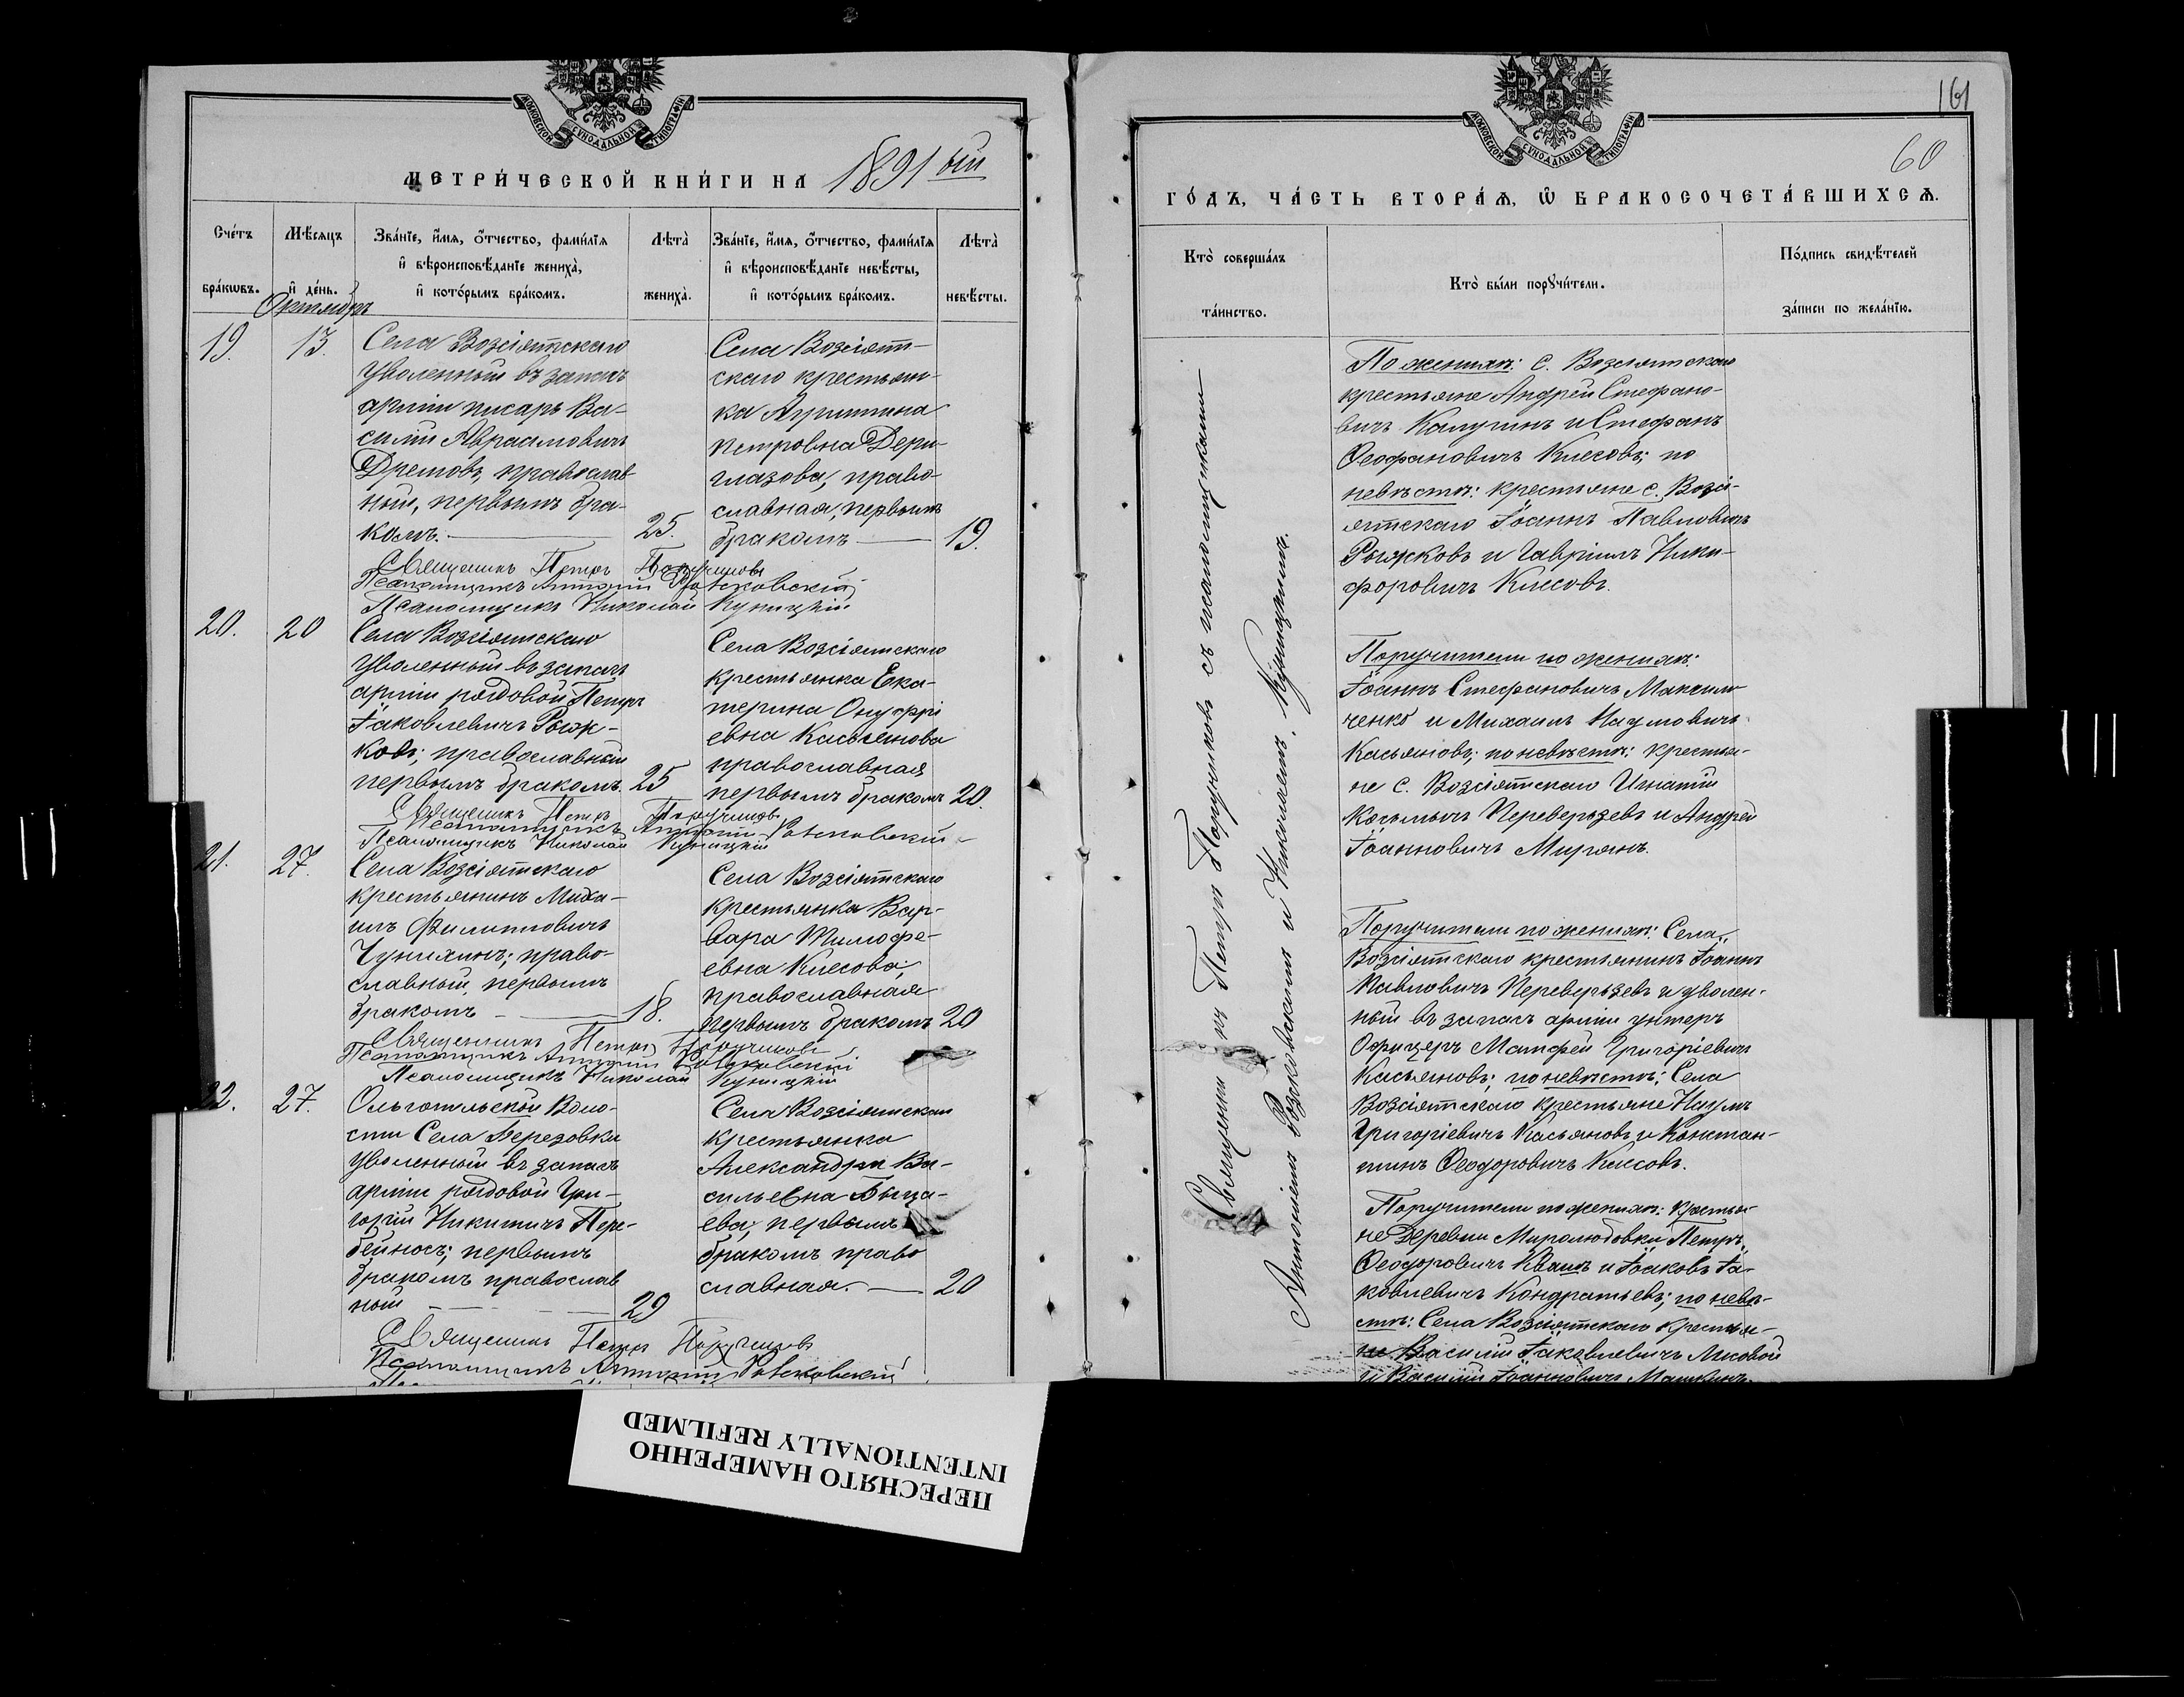 МОСКОВСКОЙ СУНОДАЛЬНОЙ ТИПОГРАФІИ
МЕТРИ́ЧЕСКОЙ КНИ́ГИ НА 1891 ый
Сче́тъ бра́кωвъ.
Мѣ́сяцъ и҆ де́нь.
Зва́нїе, и҆́мя, ѻ҆́тчество, фами́лїя
и҆ вѣроисповѣ́данїе жениха̀,
и҆ кото́рымъ бра́комъ.
Лѣта̀ жениха̀.
Зва́нїе, и҆́мя, ѻ҆́тчество, фами́лїя
и҆ вѣроисповѣ́данїе невѣ́сты,
и҆ кото́рымъ бра́комъ.
Лѣта̀ невѣ́сты.
Октябрь
19.
13.
Села Возсіятскаго
уволенный въ запасъ
арміи писарь Ва-
силій Авраамовичъ
Дремовъ, православ
ный, первымъ бра-
комъ.
25.
Села Возсіятт-
скаго крестьян-
ка Агриппина
Петровна Дери-
глазова, право-
славная, первымъ
бракомъ
19.
Священникъ Петръ Поручиковъ
Псаломщикъ Антоній
Псаломщикъ Николай Куницкій
20.
20
Села Возсіятскаго
уволенный въ запасъ
арміи рядовой Петръ
Іаковлевичъ Рыж-
ковъ; православный
первымъ бракомъ.
25
Села Возсіятскаго
крестьянка Ека-
терина Онуфрі
евна Касьянова
православная
первымъ бракомъ
20.
Священникъ Петръ Поручиковъ
Псаломщикъ Антоній
Псаломщикъ Николай Куницкій
21.
27.
Села Возсіятскаго
крестьянинъ Миха-
илъ Филипповичъ
Чунихинъ; право-
славный, первымъ
бракомъ
18.
Села Возсіятскаго
крестьянка Вар-
вара Тимофе-
евна Клесова;
православная
первымъ бракомъ
20
Священникъ Петръ Поручиковъ
Псаломщикъ Антоній
Псаломщикъ Николай Куницкій
22.
27.
Ольгопольской Воло-
сти Села Березовки
уволенный въ запасъ
арміи рядовой Гри-
горій Никитичъ Пере-
бейносъ; первымъ
бракомъ православ
ный
29
Села Возсіятскаго
крестьянка
Александра Ва-
сильевна
ева; первымъ
бракомъ право
славная.
20
Священникъ Петръ Поручиковъ
Псаломщикъ Антоній
161
МОСКОВСКОЙ СУНОДАЛЬНОЙ ТИПОГРАФІИ
60
ГО́ДЪ, ЧА́СТЬ ВТОРА́Я, Ѽ БРАКОСОЧЕТА́ВШИХСѦ.
Кто̀ соверша́лъ
та́инство.
Кто̀ бы́ли порꙋчи́тели.
По́дпись свидѣ́телей
за́писи по жела́нїю.
Священникъ Петръ Поручиковъ съ псаломщиками
Антоніемъ и Николаемъ Куницкимъ.
По женихѣ: с. Возсіятскаго
крестьяне Андрей Стефано-
вичъ Калугинъ и Стефанъ
Ѳеофановичъ Клесовъ; по
невѣстѣ: крестьяне с. Возсі-
ятскаго Іоаннъ Павловичъ
Рыжковъ и Гавріилъ Ники-
форовичъ Клесовъ.
Поручители по женихѣ:
Іоаннъ Стефановичъ Максим
ченко и Михаилъ Наумовичъ
Касьяновъ; по невѣстѣ: крестья-
не с. Возсіятскаго Игнатій
Косьмичъ Переверзевъ и Андрей
Іоанновичъ Мирянъ.
Поручители по женихѣ: Села
Возсіятскаго крестьянинъ Іоаннъ
Павловичъ Переверзевъ и уволен-
ный въ запасъ арміи унтеръ
Офицеръ Матфей Григоріевичъ
Касьяновъ; по невѣстѣ: Села
Возсіятскаго крестьяне Наумъ
Григоріевичъ Касьяновъ и Констан-
тинъ Ѳеодоровичъ Клесовъ.
Поручители по женихѣ: крестья-
не Деревни Миролюбовки Петръ
Ѳеодоровичъ Квашъ и Іаковъ Іа-
ковлевичъ Кондратьевъ; по невѣ-
стѣ: Села Возсіятскаго крестья-
не Василій Іаковлевичъ Лисовой
и Василій Іоанновичъ Машкинъ.
ПЕРЕСНЯТО НАМЕРЕННО
INTENTIONALLY REFILMED